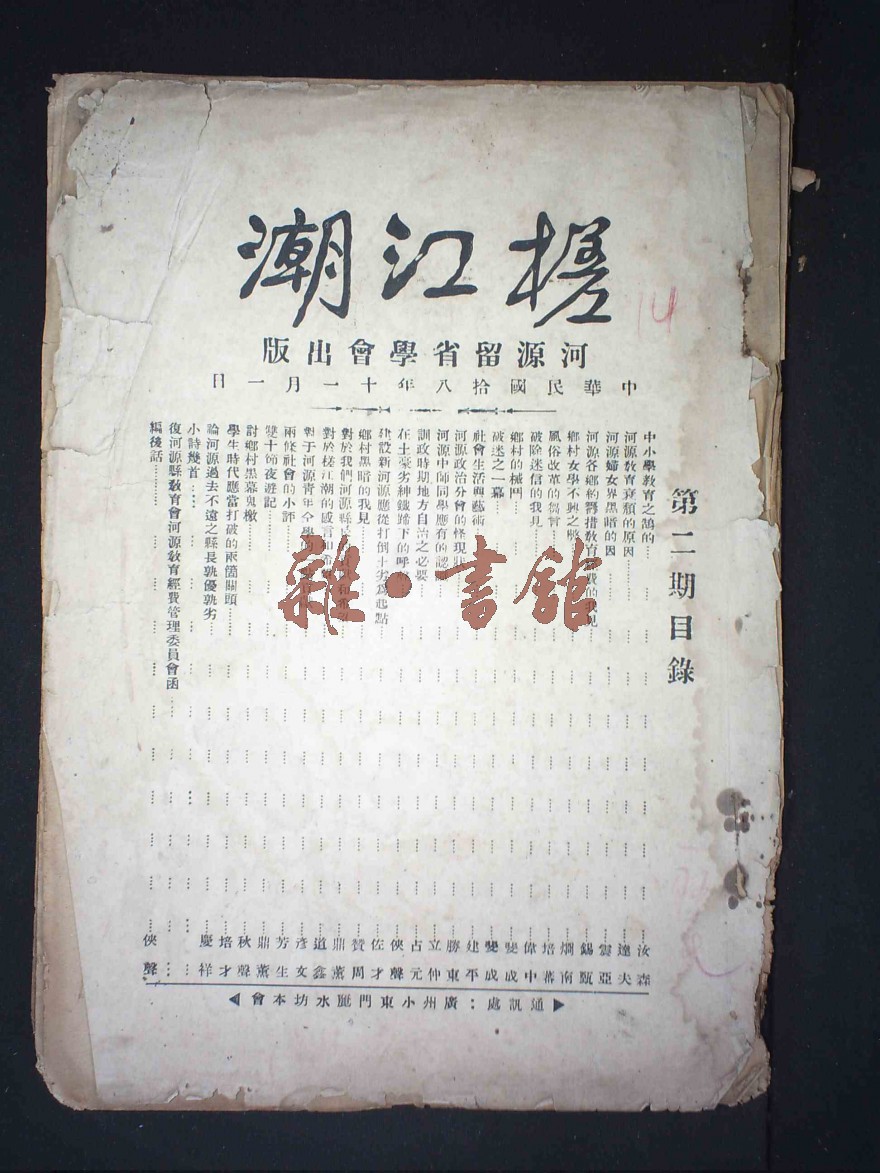 槎江潮
河源留省學會出版
中華民國拾八年十一月一日
第二期目錄
中小學敎育之鵠的 汝森
河源敎育衰頹的原因 達夫
河源婦女界黑暗的因 雲亞
河源各鄉約籌措敎育費的我見 錫甄
鄉村女學不興之 炯南
風俗改革的 培蕃
破除迷信的我見 偉中
鄉村的械鬥 燮成
破迷之一幕 燮成
社會生活與藝術 建平
河源政治分會的怪現狀 勝東
河源中師同學應有的認 立仲
訓政時期地方自治之必要 占元
在土豪劣紳鐵蹄下的呼 俠聲
建設新河源應從打倒土劣爲起點 佐才
鄉村黑暗的我見 贊周
對於我們河源縣 鼎薰
對於槎江潮的感言和希 道鑫
對于河源靑年仝學的 彥文
兩條社會的小評 芳生
雙十節夜遊記 鼎薰
討鄉村黑幕與檄 秋聲
學生時代應當打破的兩箇關頭 培才
論河源過去不遠之縣長孰優孰劣 慶祥
小詩幾首
復河源縣敎育會河源敎育經費管理委員會函
編後話 俠聲
通訊處：廣州小東門匯水坊本會
雜·書館
14